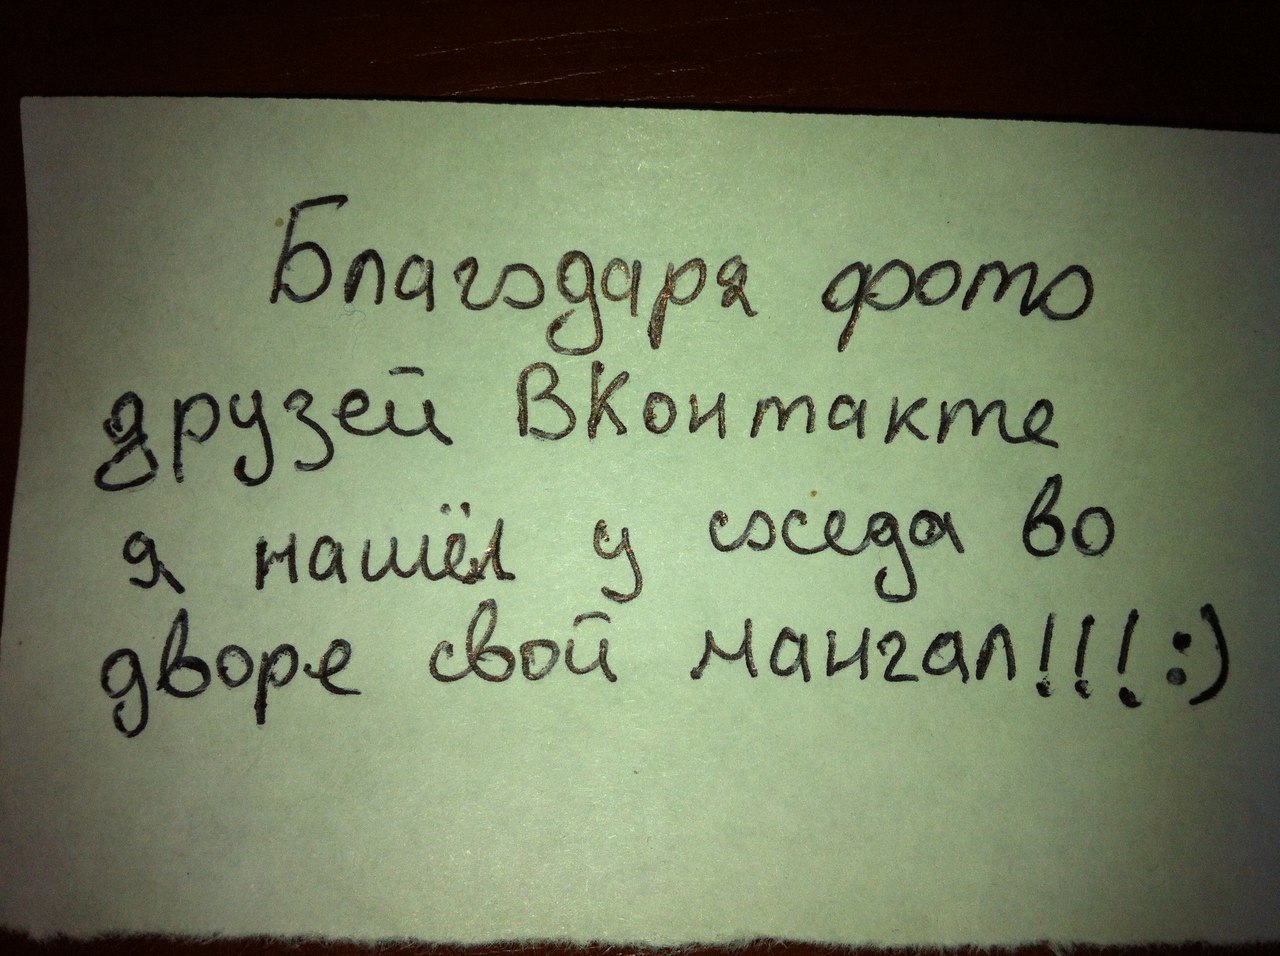 Благодаря фото
друзей ВКонтакте
я нашёл у соседа во
дворе свой мангал!!! :)